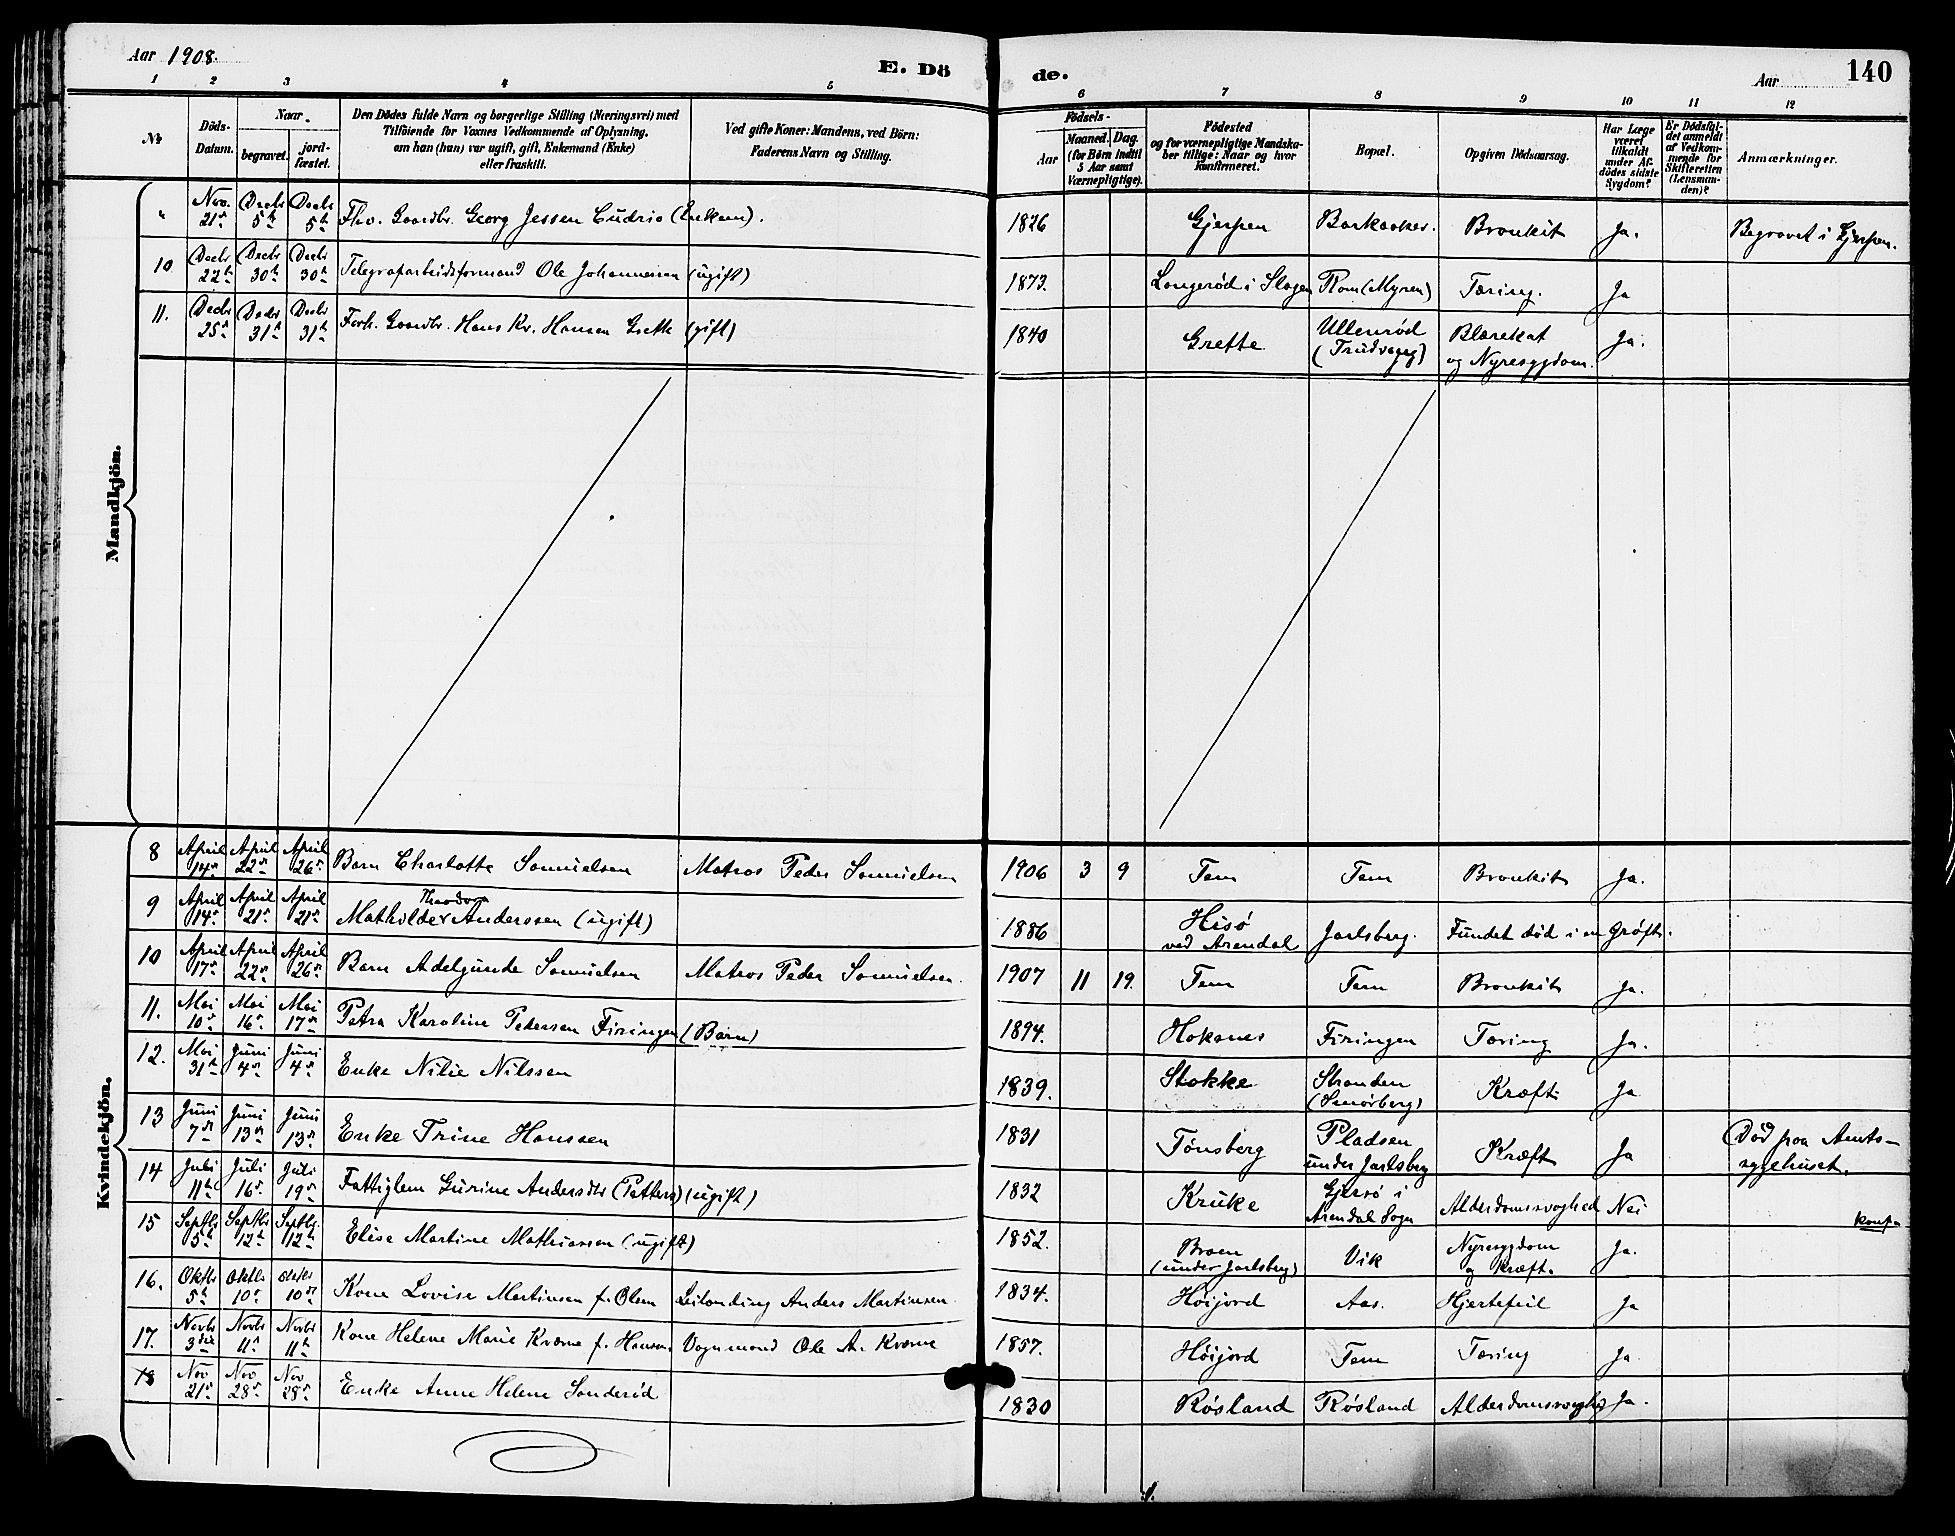 Aar 1908.
E. Dö
de.
Aar
140
1 2 3 4 5 6 7 8 9 10 11 12
No
Döds-Datum.
Naar
begravet. jordfæstet.
Den Dödes fulde Navn og borgerlige Stilling (Næringsvei) med
Tilföiende for Voxnes Vedkommende af Oplysning,
om han (hun) var ugift, gift, Enkemand (Enke)
eller fraskilt.
Ved gifte Koner: Mandens, ved Börn:
Faderens Navn og Stilling.
Födsels-
Aar
Maaned. Dag.
(for Börn indtil
5 Aar samt
Værnepligtige).
Födested
og for værnepligtige Mandska-
ber tillige: Naar og hvor
konfirmeret.
Bopæl.
Opgiven Dödsaarsag.
Har Læge
været
tilkaldt
under Af-
dödes sidste
Sygdom?
Er Dödsfal-
det anmeldt
af Vedkom-
mende for
Skifteretten
(Lensman-
den)?
Anmærkninger.
Mandkjön.
" Nov. 21 Decbr 5 Decbr 5 Fhv. Gaardbr. Georg Jessen Cudrio (Enkem). 1826 Gjerpen Barkaaker. Bronkit Ja. Begravet i Gjerpen.
10 Decbr 22 Decbr 30 Decbr 30 Telegrafarbeidsformand Ole Johannesen (ugift) 1873. Langerød i Slagen Rom (Myren) Tæring. Ja
11. Decbr 25 Decbr 31 Decbr 31 Forh. Gaardbr. Hans Kr. Hansen Grette (gift) 1840 Grette Ullenrød (Trudvang) Blærekat og Nyresygdom. Ja.
Kvindekjön.
8 April 14 April 22 April 26 Barn Charlotte Samuelsen Matros Peder Samuelsen 1906 3 9 Tem Tem Bronkit Ja.
9 April 14 April 21 April 21 Mathilde Theodora Anderssen (ugift) 1886 Hisø ved Arendal Jarlsberg. Fundet død i en Grøft.
10 April 17 April 22 April 26 Barn Adelgunde Samuelsen Matros Peder Samuelsen. 1907 11 19 Tem Tem Bronkit Ja.
11. Mai 10 Mai 16 Mai 17 Petra Karoline Pedersen Firingen (Barn) 1894. Hoksnes Firingen Tæring Ja.
12. Mai 31 Juni 4 Juni 4 Enke Nilie Nilssen 1839. Stokke Stranden (Smørberg) Kræft Ja
13 Juni 7 Juni 13 Juni 13 Enke Trine Hanssen 1831 Tønsberg Pladsen under Jarlsberg Kræft Ja Død paa Amts-sygehuset.
14 Juli 11 Juli 16 Juli 19 Fattiglem Gurine Andersdtr (Petters) (ugift) 1832 Kruke Gjersø i Arendal Sogn Alderdomssvaghed Nei
15 Septbr 5 Septbr 12 Septbr. 12 Elise Martine Mathiassen (ugift) 1852. Braen (under Jarlsberg) Vik Nyresygdom og Kræft. Ja. konf.
16. Oktbr 5 Oktbr 10 Oktbr 10 Kone Lovise Martinsen f. Olsen Leilending Anders Martinsen. 1834. Høijord Aas. Hjertefeil Ja
17. Novbr 3die Novbr 11 Novbr 11 Kone Helene Marie Kværne f. Hansen Vognmand Ole A. Kværne 1857. Høijord Tem Tæring Ja
18 Nov 21 Nov 28 Nov 28 Enke Anne Helene Sanderød 1830 Røsland Røsland Alderdomssvaghed Ja.